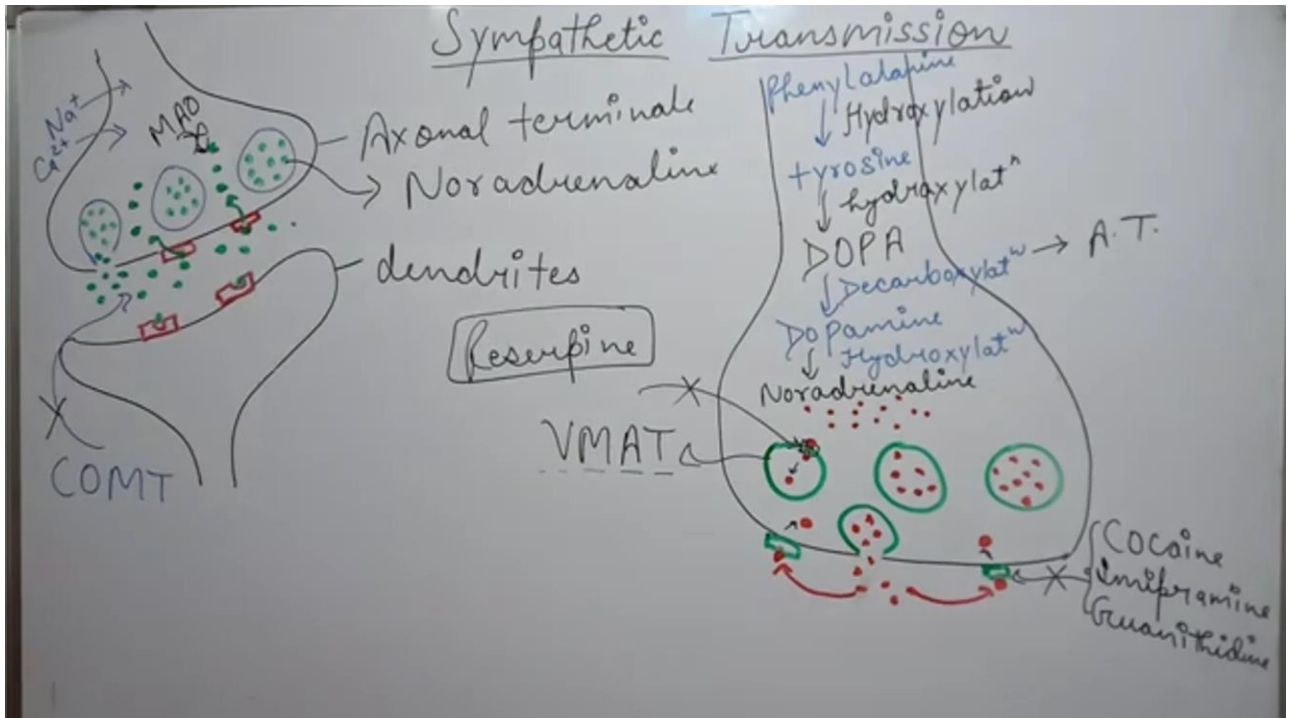 Sympathetic Transmission
Na+
Ca2+
MAO
Axonal terminale
Noradrenaline
dendrites
COMT
Reserpine
VMAT
Phenylalanine
Hydroxylation
tyrosine
hydroxylatⁿ
DOPA
Decarboxylatⁿ → A.T.
Dopamine
Hydroxylatⁿ
Noradrenaline
Cocaine
imipramine
Guanithidine